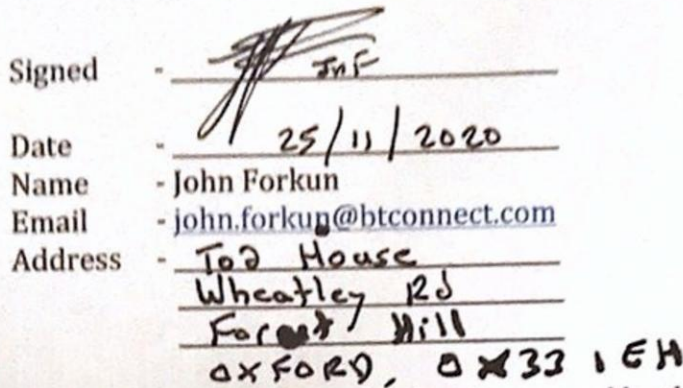 Signed - JnF
Date - 25/11/2020
Name - John Forkun
Email - john.forkun@btconnect.com
Address - Tod House
Wheatley Rd
Forest Hill
OXFORD, OX33 1EH